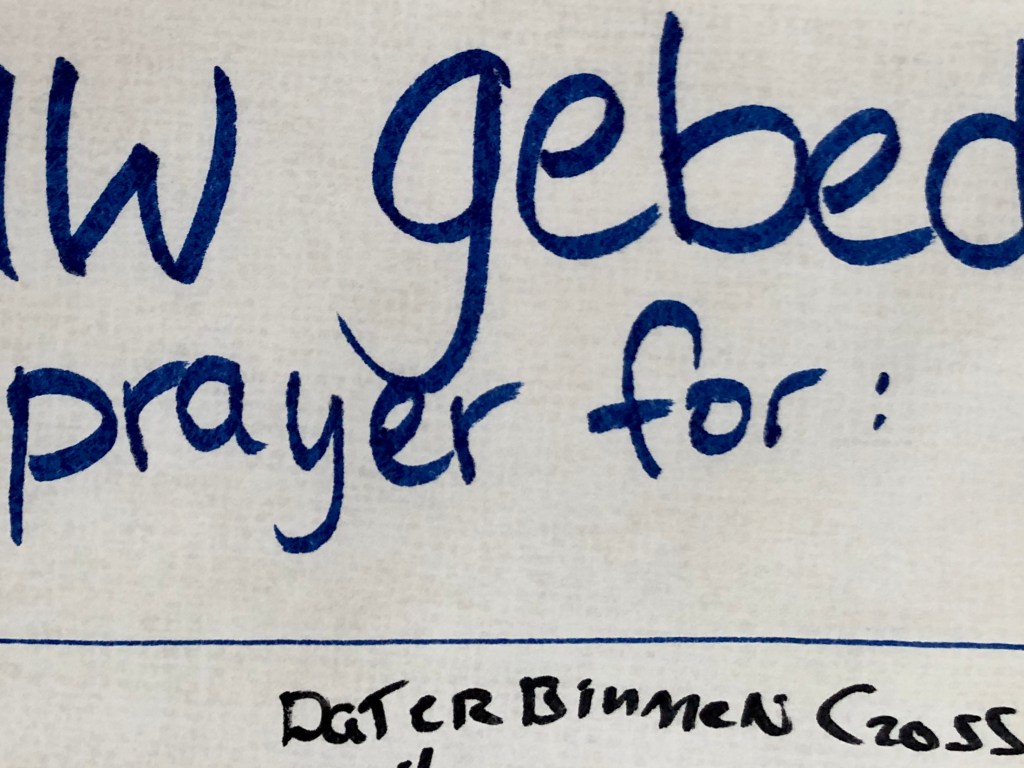 uw gebed
prayer for:
DaT ER BINNEN CROSS